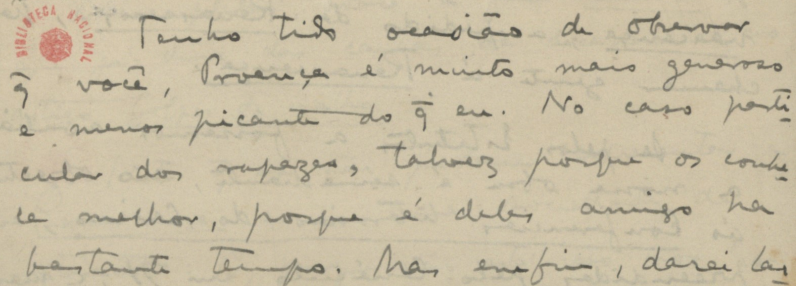 BIBLIOTECA NACIONAL
Tenho tido ocasião de observar
q̃ você, Proença é muito mais generoso
e menos picante do q̃ eu. No caso parti-
cular dos rapazes, talvez porque os conhe-
ce melhor, porque é deles amigo ha
bastante tempo. Mas enfim, darei las-